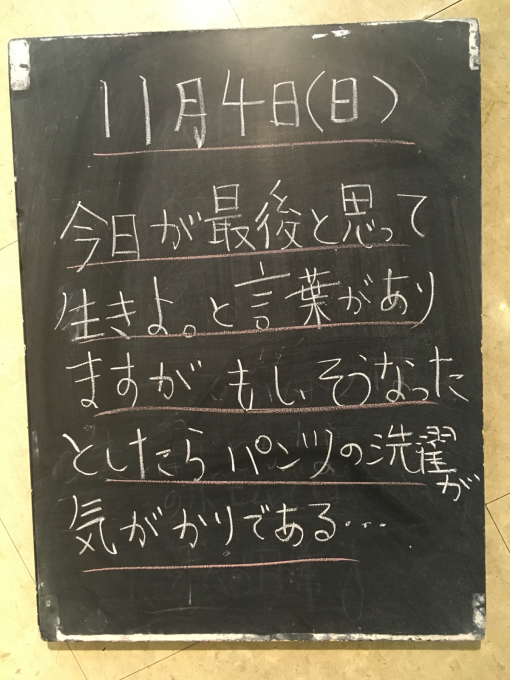 11月4日(日)
今日が最後と思って
生きよ。と言葉があり
ますが もしそうなった
としたら パンツの洗濯が
気がかりである…